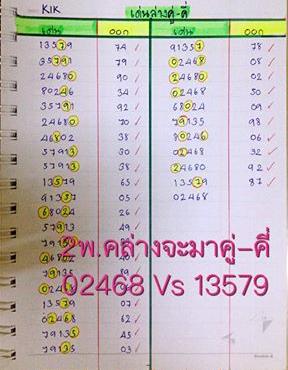 KIK
เด่นล่างคู่-คี่
เด่น ออก เด่น ออก
13579 74 91357 78
35791 79 02468 08
24680 90 24680 02
80246 34 02468 50
35791 92 68024 09
24680 70 79135 98
46802 38 80246 06
57913 30 02468 32
57913 38 24680 92
13579 65 13579 87
91357 05 02468
68024 26
57913 49
79
468
79135 89
02
13579 07
02468 62
79135 45
79135 03
2พ.คล่างจะมาคู่-คี่
02468 Vs 13579